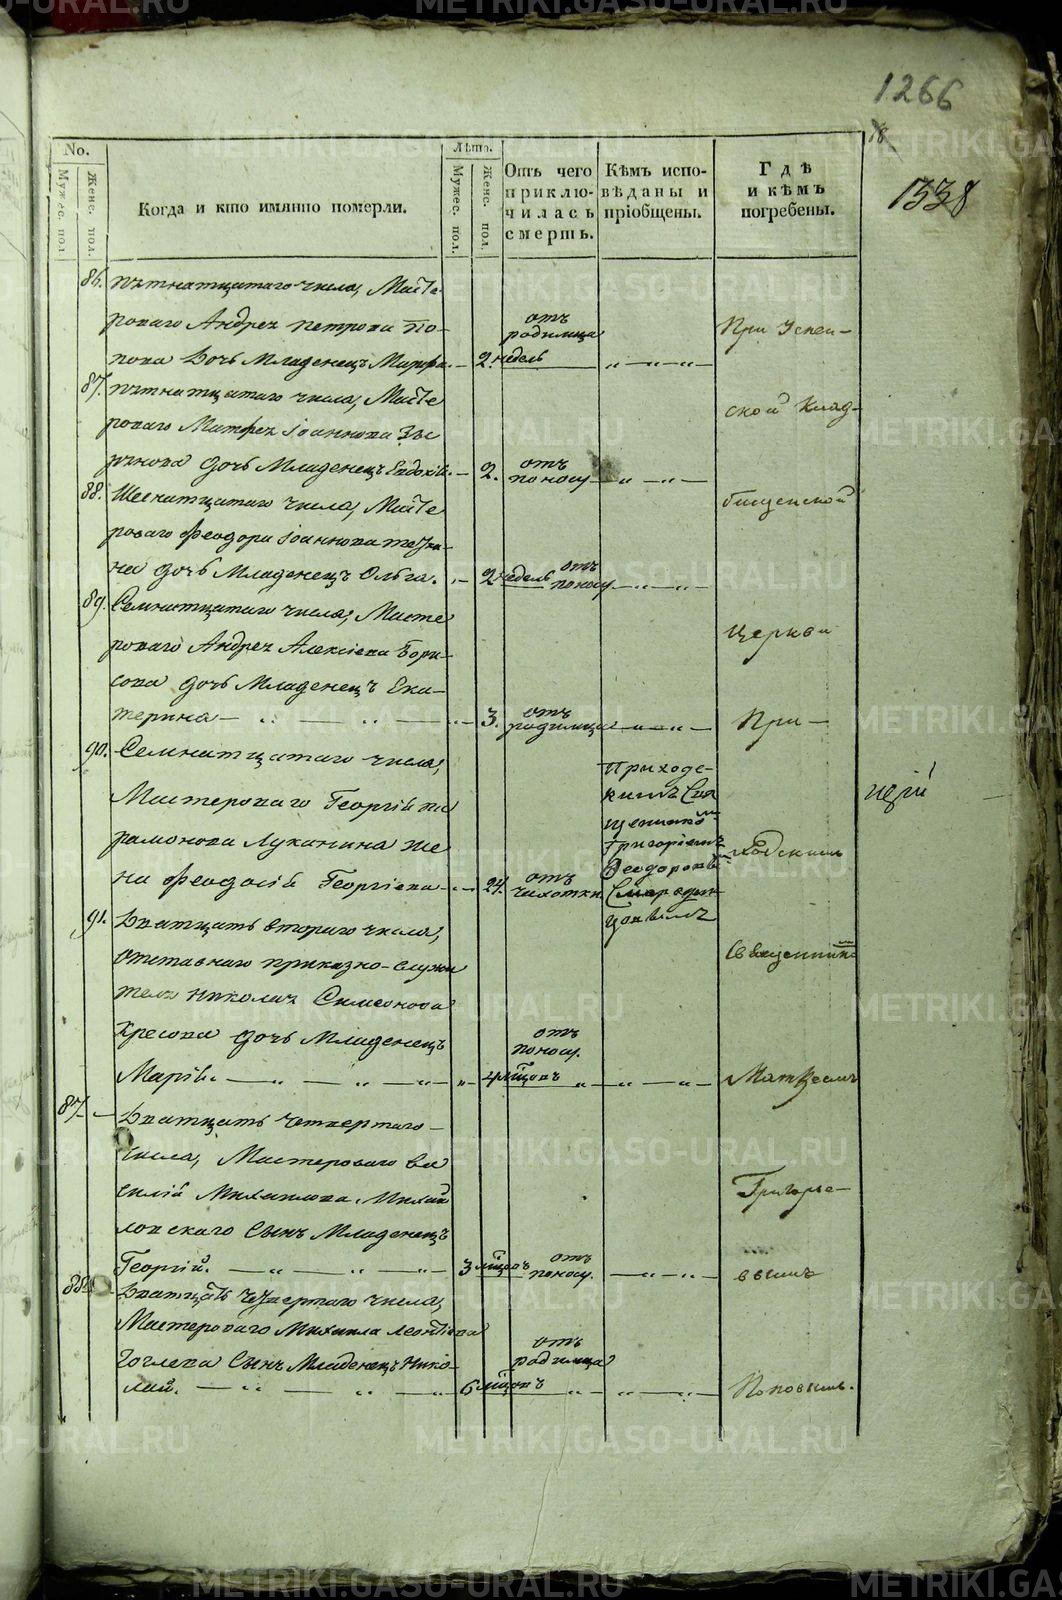 1266
18
1338
No.
Лѣта.
Мужес. пол.
Женс. пол.
Когда и кто имянно померли.
Мужес. пол.
Женс. пол.
Отъ чего приклю-чилась смерть.
Кѣмъ испо-вѣданы и пріобщены.
Гдѣ и кѣмъ погребены.
86. пятнатцатаго числа, Масте
роваго Андрея петрова По-
пова дочь Младенецъ Марфа. — 2. недель
отъ
родимца
При Успен-
87. пятнатцатаго числа, Масте
роваго Матфея Іоаннова Зы
рянова дочь Младенецъ Евдокія. — 2.
отъ
поносу
ской Клад-
88. Шеснатцатаго числа, Масте
роваго Феодора Іоаннова
на дочь Младенецъ Ольга. — 2 недель
отъ
поносу
бищенской
89. Семнатцатаго числа, Масте
роваго Андрея Алексіева Бори-
сова дочь Младенецъ Ека-
терина — 3.
отъ
родимца
Церкви
При-
90. Семнатцатаго числа,
Мастероваго Георгія па
рамонова Луканина же
на Феодосія Георгіева. — 24.
отъ
чахотки
Приходс-
кимъ Свя
щенникомъ
Григоріемъ
Феодоровымъ
цовымъ
ходскимъ
цей
91. Дватцать втораго числа,
отставнаго приказно-служи
теля Николая Симеонова
Кресова дочь Младенецъ
Марія. — 4 мѣсцовъ
отъ
поносу.
Священникомъ
Матвеемъ
87. — Дватцать четвертаго
числа, Мастероваго Ва
силія Михаилова Михай
ловскаго Сынъ Младенецъ
Георгій. — 3 мѣсцовъ
отъ
поносу.
Григорье-
вымъ
88. Дватцать четвертаго числа,
Мастероваго Михаила Леонтіева
Гоглева Сынъ Младенецъ Нико-
лай. — 6 мѣсцовъ
отъ
родимца
Поповымъ.
METRIKI.GASO-URAL.RU